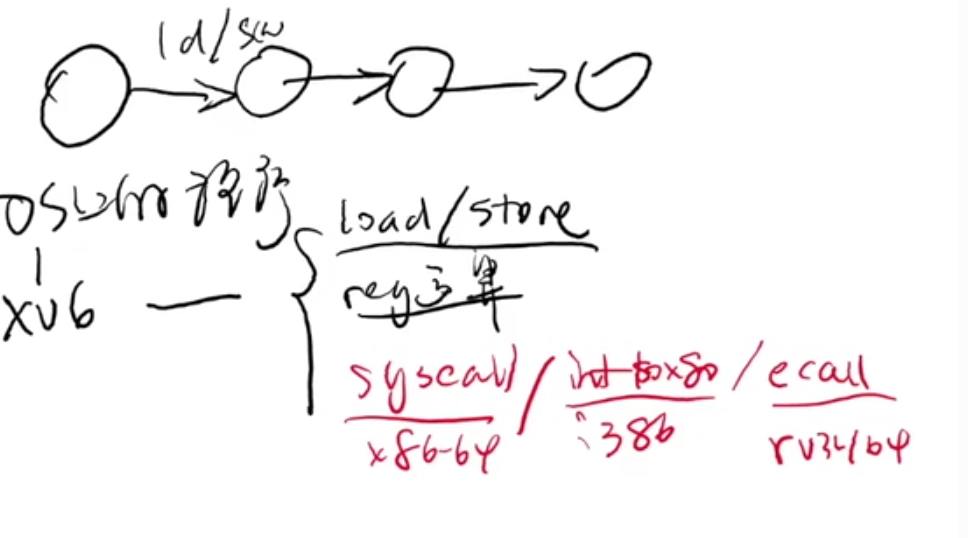 ld/sw
OS上的程序
load/store
reg运算
xv6
syscall / int $0x80 / ecall
x86-64 i386 rv32/64